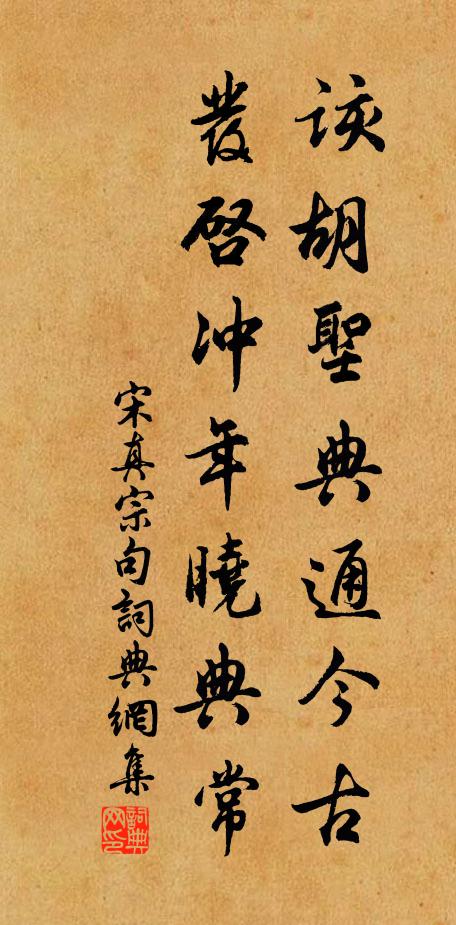 該胡聖典通今古
發啓冲年曉典常
宋真宗句詞典網集
詞典網印